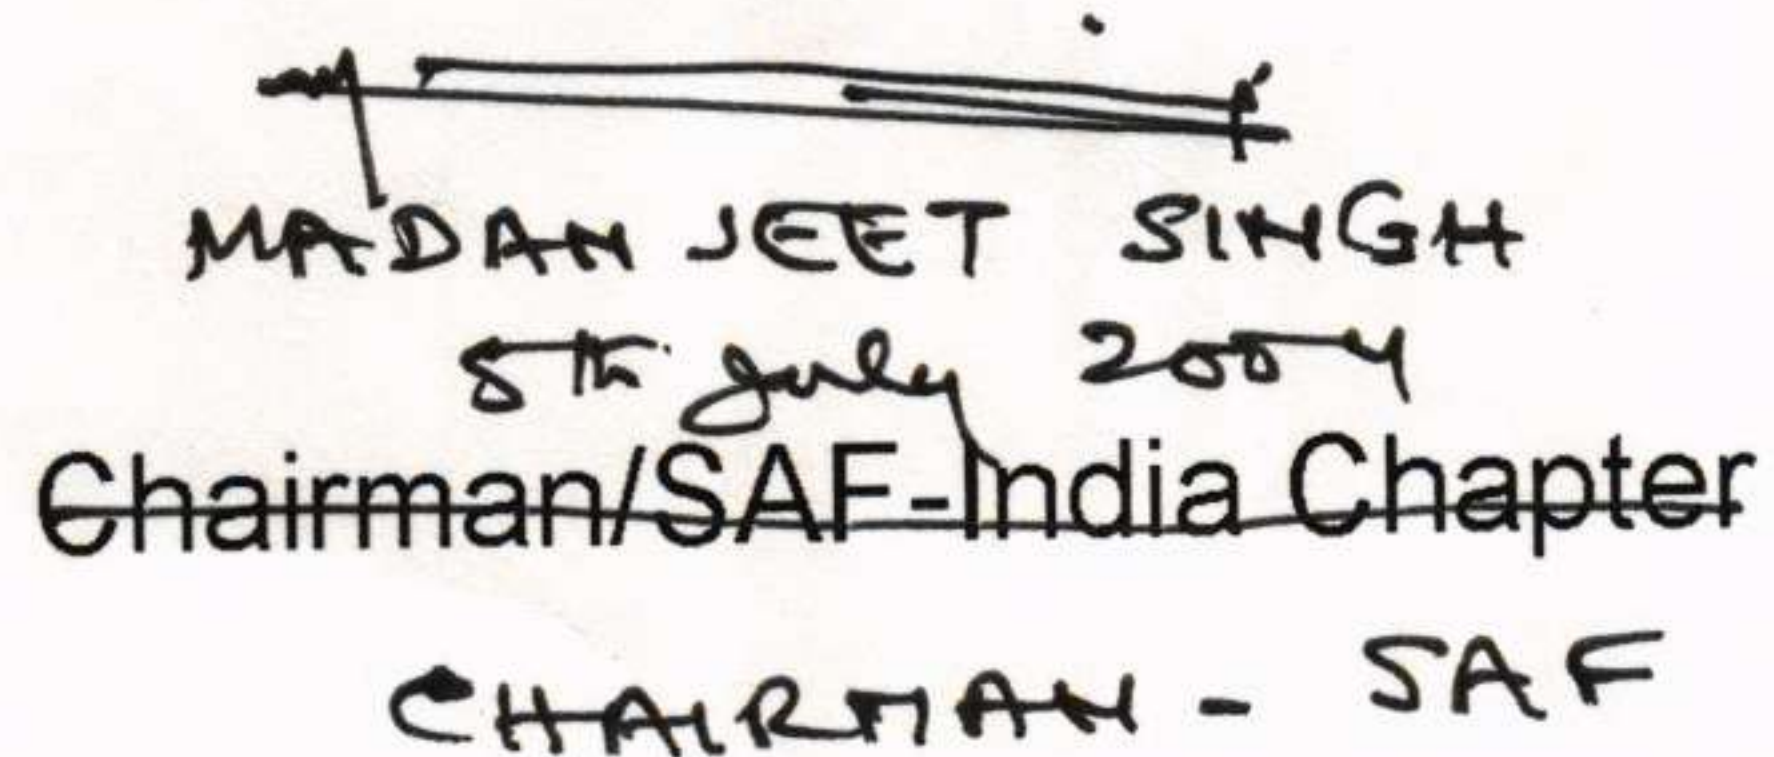 MADANJEET SINGH
8th July 2004
Chairman/SAF-India Chapter
CHAIRMAN - SAF